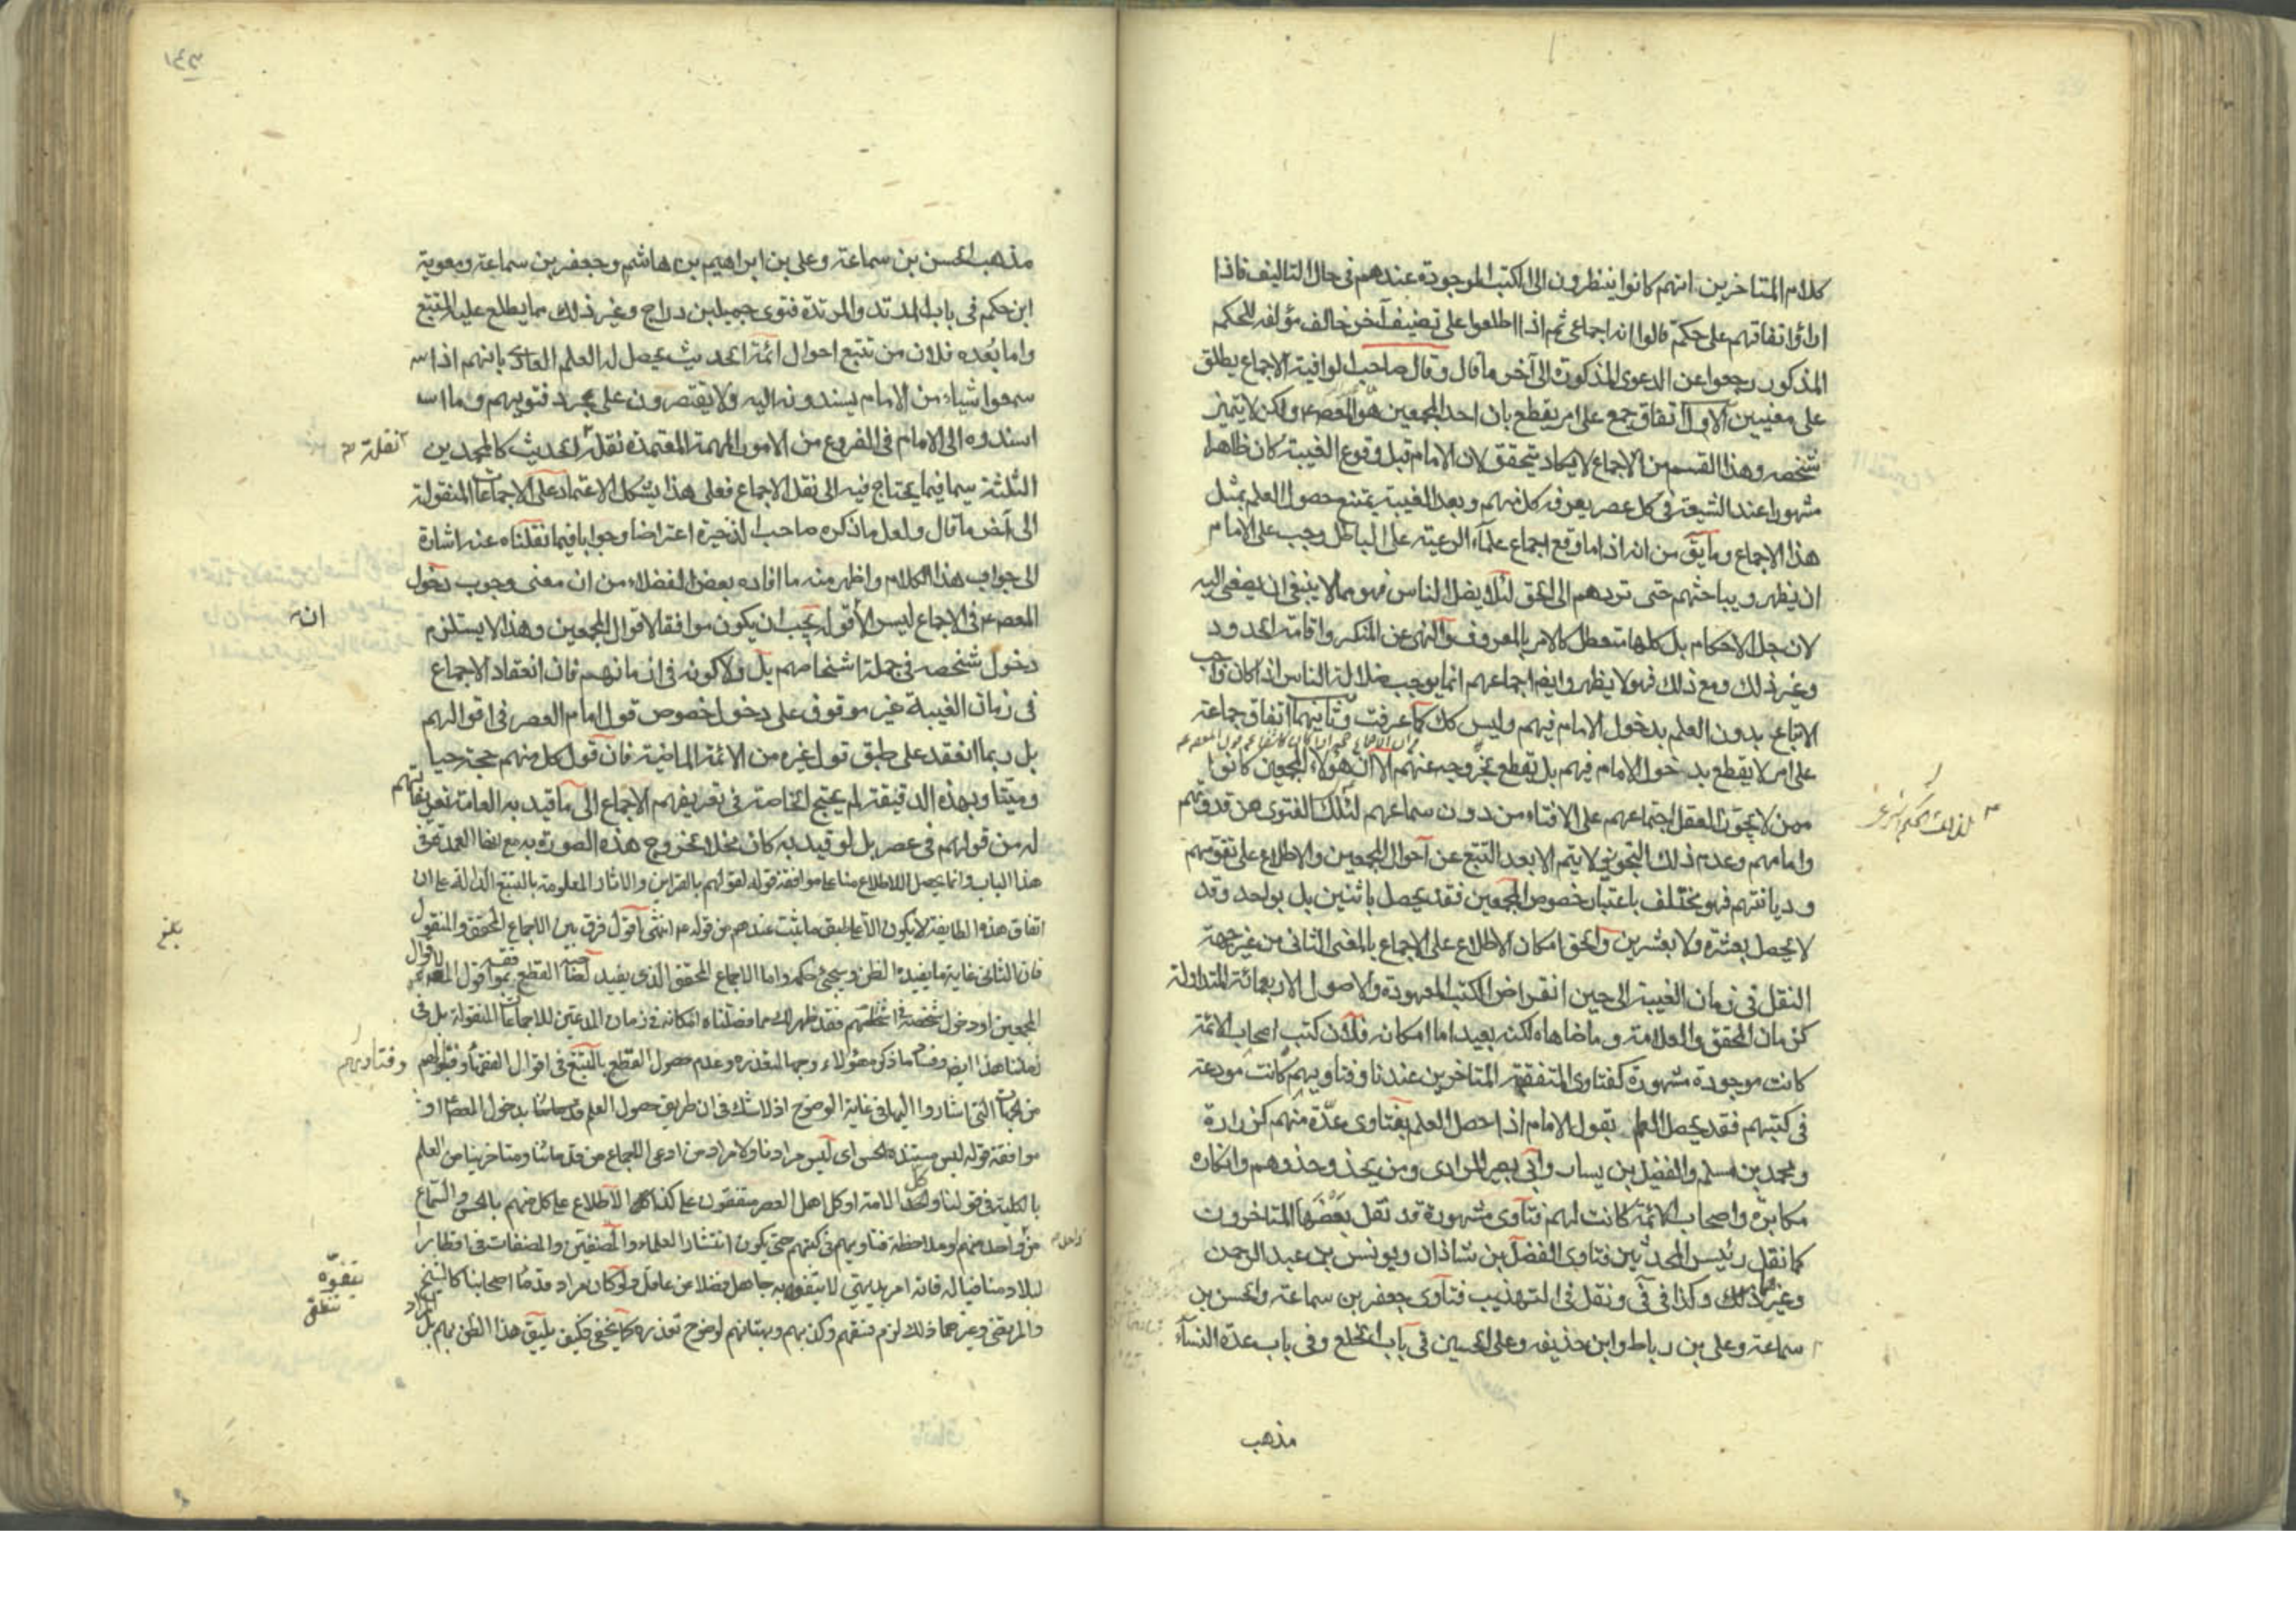 كلام المتاخرين انهم كانوا ينظرون الى الكتب الموجودة عندهم في حال التاليف فاذا
راوا اتفاقهم على حكم قالوا انه اجماعي ثم اذا اطلعوا على تصنيف آخر خالف مؤلفه للحكم
المذكور رجعوا عن الدعوى المذكورة الى آخر ما قال وقال صاحب الوافية الاجماع يطلق
على معنيين الاول اتفاق جمع على امر يقطع بان احد المجمعين هو المعصوم ولكن لا يتميز
شخصه وهذا القسم من الاجماع لا يكاد يتحقق لان الامام قبل وقوع الغيبة كان ظاهرا
مشهورا عند الشيعة في كل عصر يعرفه كل منهم وبعد الغيبة يمتنع حصول العلم بمثل
هذا الاجماع وما يق من انه اذا ما وقع اجماع علماء الرعية على الباطل وجب على الامام
ان يظهر ويباحثهم حتى تردهم الى الحق لئلا يضل الناس فهو مما لا ينبغي ان يصغى اليه
لان جل الاحكام بل كلها متعطل كالامر بالمعروف والنهى عن المنكر واقامة الحدود
وغير ذلك ومع ذلك فهو لا يظهر وايضا اجماعهم انما يوجب ضلالة الناس اذا كان واجب
الاتباع بدون العلم بدخول الامام فيهم وليس كك كما عرفت وثانيهما اتفاق جماعة
على امر لا يقطع بدخول الامام فيهم بل يقطع بخروجه عنهم الا ان هؤلاء المجمعين كانوا
ممن لا يجوز العقل اجتماعهم على الافتاء من دون سماعهم لتلك الفتوى من قدوتهم
وامامهم وعدم ذلك التجويز لا يتم الا بعد التتبع عن احوال المجمعين والاطلاع على تقويهم
وديانتهم فهو يختلف باعتبار خصوص المجمعين فقد يحصل باثنين بل بواحد وقد
لا يحصل بعشرة ولا بعشرين والحق امكان الاطلاع على الاجماع بالمعنى الثاني من غير جهة
النقل في زمان الغيبة الى حين انقراض الكتب المعهودة والاصول الاربعمائة المتداولة
كزمان المحقق والعلامة وما ضاهاه لكنه بعيد اما امكانه فلان كتب اصحاب الائمة
كانت موجودة مشهورة كفتاوى المتفقهة المتاخرين عندنا وفتاويهم كانت مودعة
في كتبهم فقد يحصل العلم بقول الامام اذا حصل العلم بفتاوى عدة منهم كزرارة
ومحمد بن مسلم والفضيل بن يسار وابي بصير المرادى ومن يحذو حذوهم وانكاره
مكابرة واصحاب الائمة كانت لهم فتاوى مشهورة قد نقل بعضها المتاخرون
كما نقل رئيس المحدثين فتاوى الفضل بن شاذان ويونس بن عبد الرحمن
وغير ذلك وكذا في في ونقل في التهذيب فتاوى جعفر بن سماعة والحسن بن
سماعة وعلى بن رباط وابن حذيفه وعلى الحسين في باب الخلع وفي باب عدة النساء
مذهب
مذهب الحسن بن سماعة وعلى بن ابراهيم بن هاشم وجعفر بن سماعة ومعوية
ابن حكم في باب المرتد والمرتدة فتوى جميل بن دراج وغير ذلك مما يطلع عليه المتتبع
واما بعده فلان من تتبع احوال ائمة الحديث يحصل له العلم العادى بانهم اذا سـ
سمعوا شياء من الامام يسندونه اليه ولا يقتصرون على مجرد فتويهم وما اسـ
اسندوه الى الامام في الفروع من الامور المهمة المعتمدة نقلة الحديث كالمحمدين
نقلته
الثلثة سيما فيما يحتاج فيه الى نقل الاجماع فعلى هذا يشكل الاعتماد على الاجماعات المنقولة
الى آخر ما قال ولعل ما ذكره صاحب الذخيرة اعتراضا وجوابا فيما نقلناه عنه اشارة
الى جواب هذا الكلام واظهر منه ما افاده بعض الفضلاء من ان معنى وجوب دخول
المعصوم في الاجماع ليس الا قوله يجب ان يكون موافقا لاقوال المجمعين وهذا لا يستلزم
انه
دخول شخصه في جملة اشخاصهم بل ولا كونه في ازمانهم فان انعقاد الاجماع
في زمان الغيبة غير موقوف على دخول خصوص قول امام العصر في اقوالهم
بل ربما انعقد على طبق قول غيره من الائمة الماضية فان قول كل منهم حجة حيا
وميتا وبهذه الدقيقة لم يحتج الخاصة في تعريفهم الاجماع الى ما قيد به العامة تعريفاتهم
له من قولهم في عصر بل لو قيد به كان مخلا بخروج هذه الصورة به مع انها العمدة في
هذا الباب وانما يحصل الاطلاع منا على موافقة قوله لقولهم بالقراين والاثار المعلومة بالتتبع الدالة على ان
اتفاق هذه الطايفة لا يكون الا على طبق ما ثبت عندهم من قوله انتهى اقول فرق بين الاجماع المحقق والمنقول
بلغ
فان الثانى غاية ما يفيده الظن وسيجئ حكمه واما الاجماع المحقق الذى يفيد القطع بموافقة قول المعصوم لاقوال
المجمعين او دخول شخصه في اشخاصهم فقد ظهر لك مما فصلناه امكانه في زمان المدعين للاجماعات المنقولة بل في
زماننا هذا ايضا وفساد ما ذكر هؤلاء وجها لتعذره وعدم حصول القطع بالتتبع في اقوال الفقهاء وفتاواهم
وفتاويهم
من الجهات التى اشاروا اليها في غاية الوضوح اذ لا شك في ان طريق حصول العلم بدخول المعصوم او
موافقة قوله ليس مستنده الحس اى ليس مرادنا ولا مراد من ادعى الاجماع من قدمائنا ومتاخرينا من العلم
بالكلية في قولنا كل الامة او كل اهل العصر متفقون على كذا الاطلاع على كل منهم بالحس والسماع
من واحد منهم او ملاحظة فتاويهم في كتبهم حتى يكون انتشار العلماء والمصنفين والمصنفات في اقطار
البلاد منافيا له فانه امر بديهي لا يتفوه به جاهل فضلا عن عاقل ولو كان مراد قدماء اصحابنا كالشيخ
يتفوه
والمرتضى وغيرهما ذلك لزم فسقهم وكذبهم وبهتانهم لوضوح تعذره كما لا يخفى وكيف يليق هذا الظن بهم بل